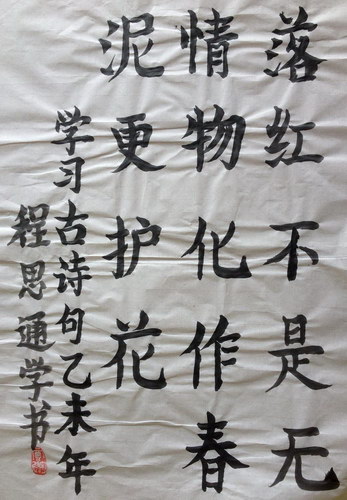 落红不是无
情物化作春
泥更护花
学习古诗句乙未年
程思通学书